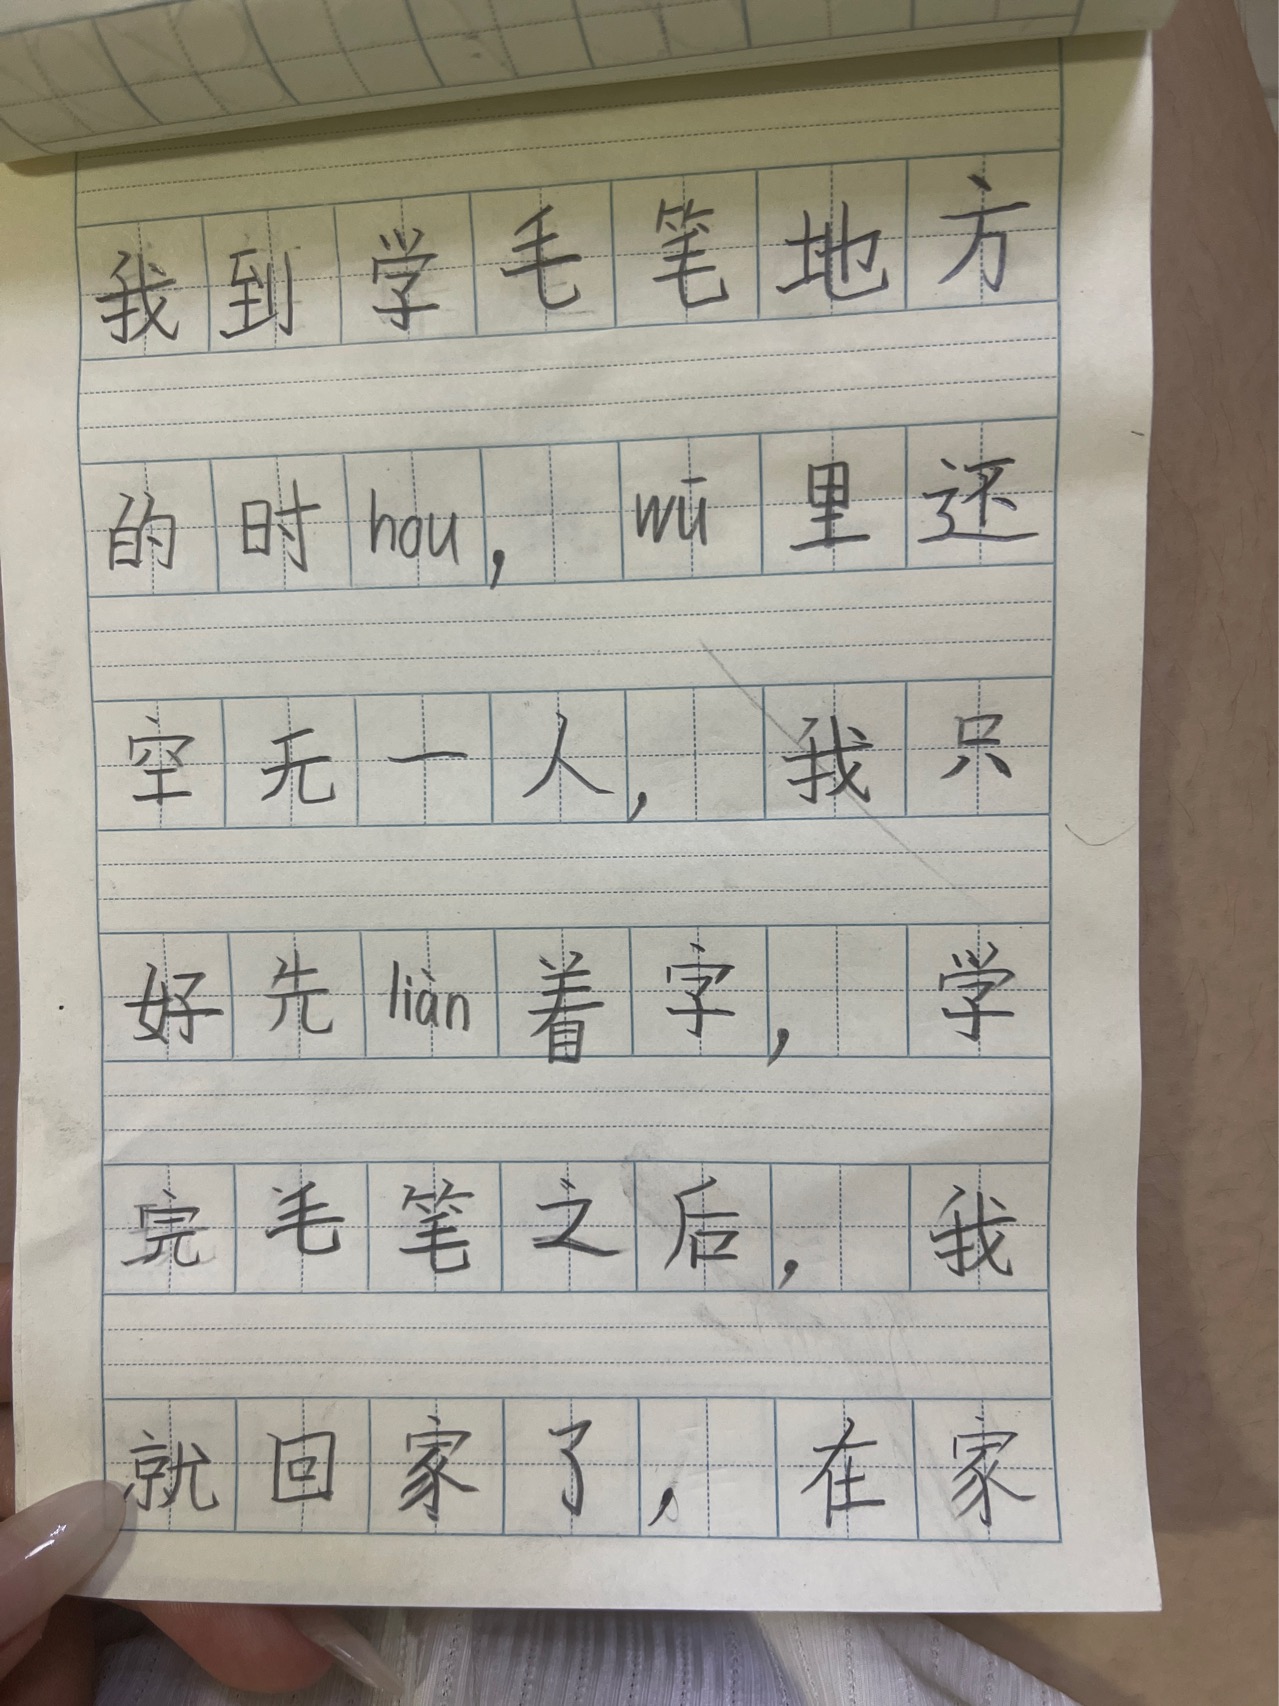 我到学毛笔地方
的时hou，wū里还
空无一人，我只
好先liàn着字，学
完毛笔之后，我
就回家了，在家